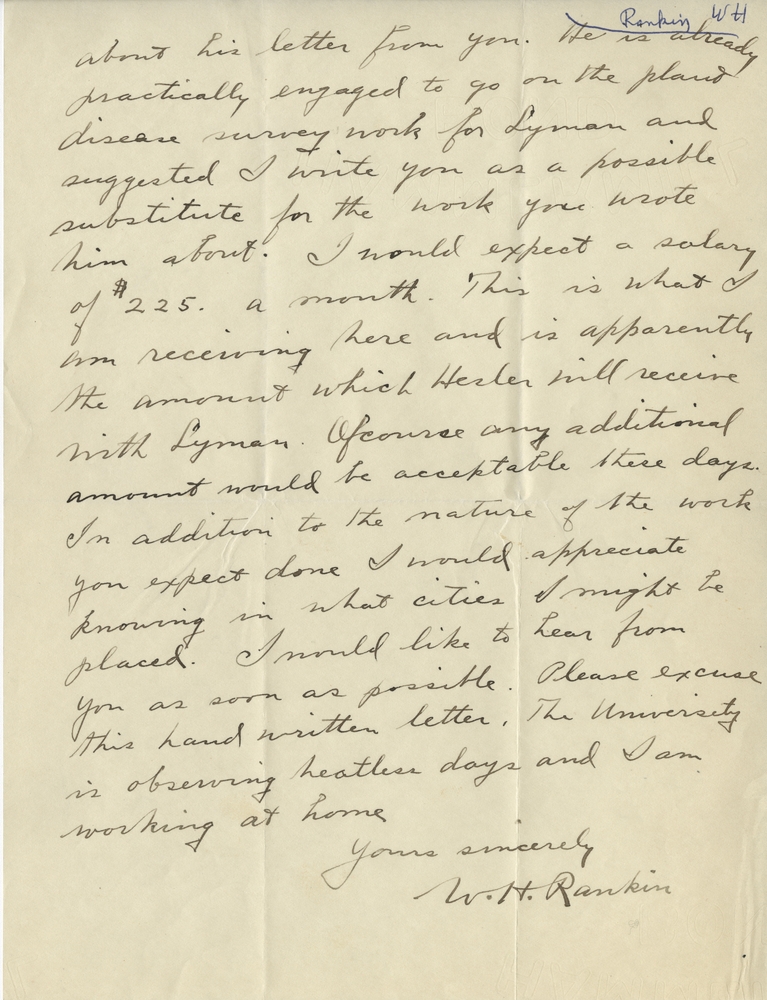 Rankin WH
about his letter from you. He is already
practically engaged to go on the plant
disease survey work for Lyman and
suggested I write you as a possible
substitute for the work you wrote
him about. I would expect a salary
of $225. a month. This is what I
am receiving here and is apparently
the amount which Hesler will receive
with Lyman. Ofcourse any additional
amount would be acceptable these days.
In addition to the nature of the work
you expect done I would appreciate
knowing in what cities I might be
placed. I would like to hear from
you as soon as possible. Please excuse
this hand written letter. The University
is observing heatless days and I am
working at home
Yours sincerely
W. H. Rankin